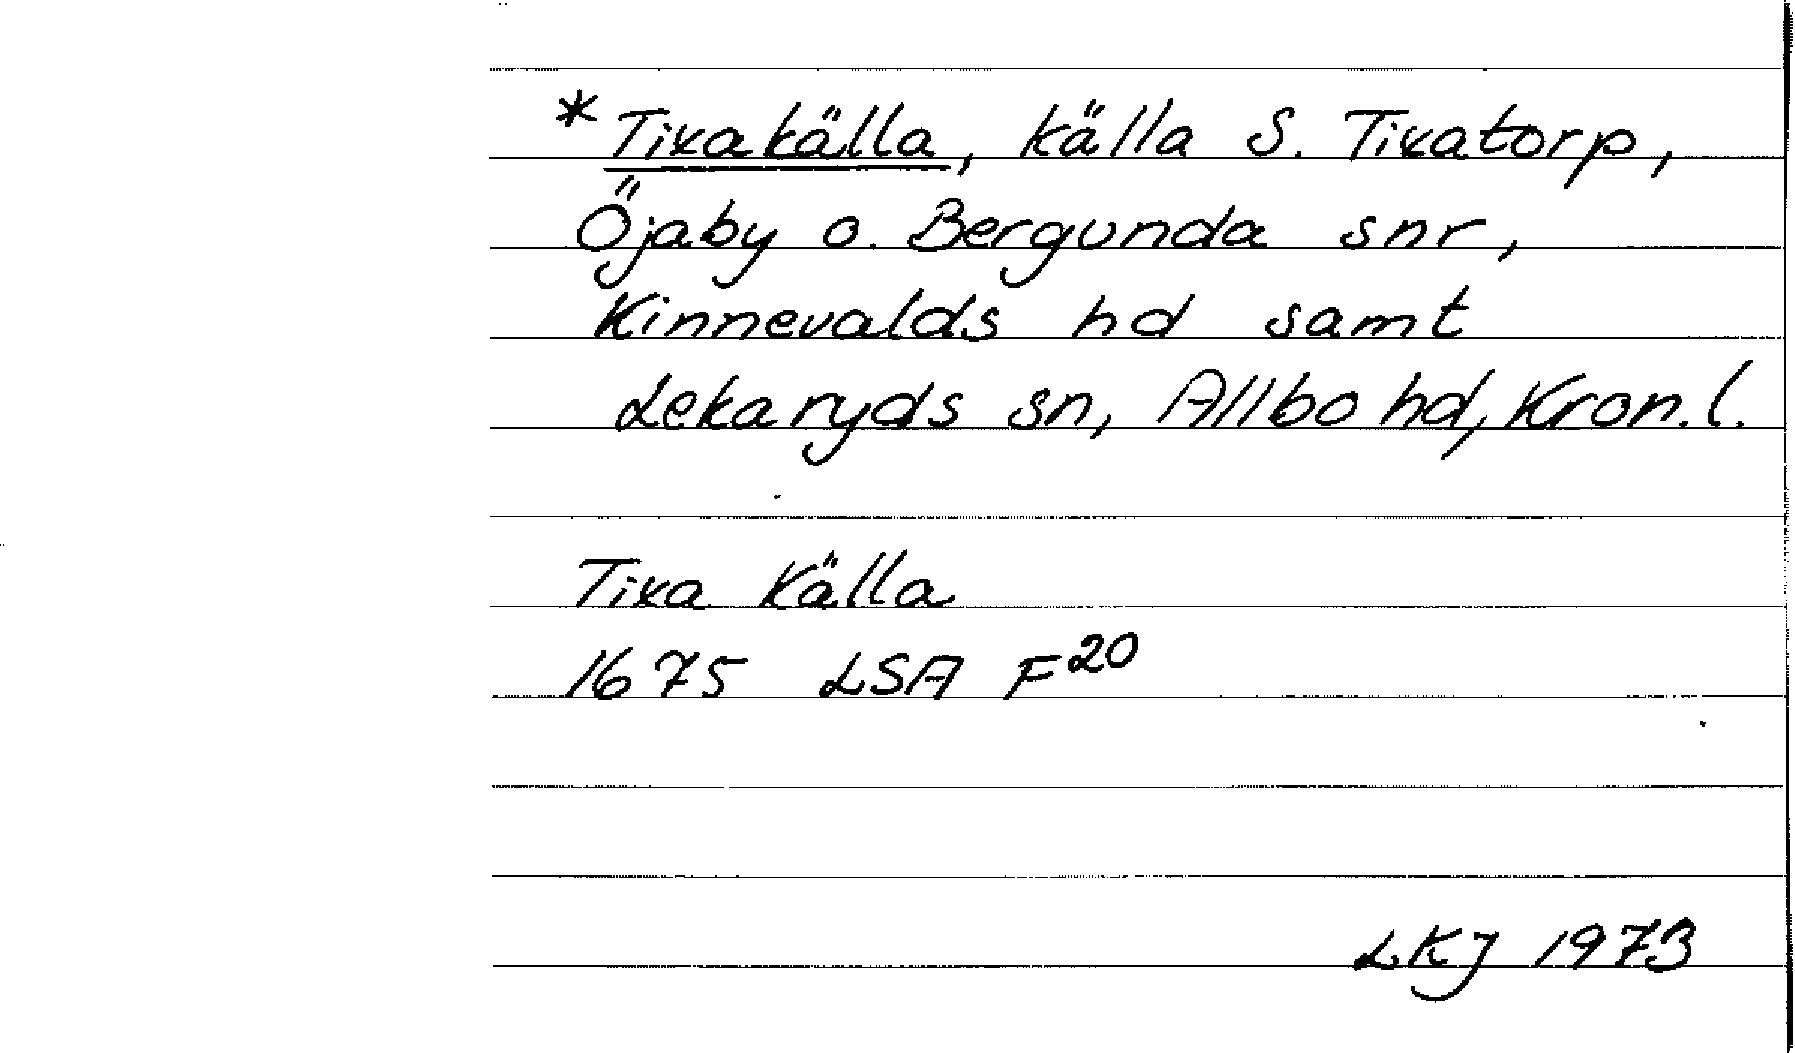 *Tixakälla, källa S. Tixatorp,
Öjaby o. Bergunda snr,
Kinnevalds hd samt
Lekaryds sn, Allbo hd, Kron. l.
Tixa Källa
1675 LSA F20
LKJ 1973